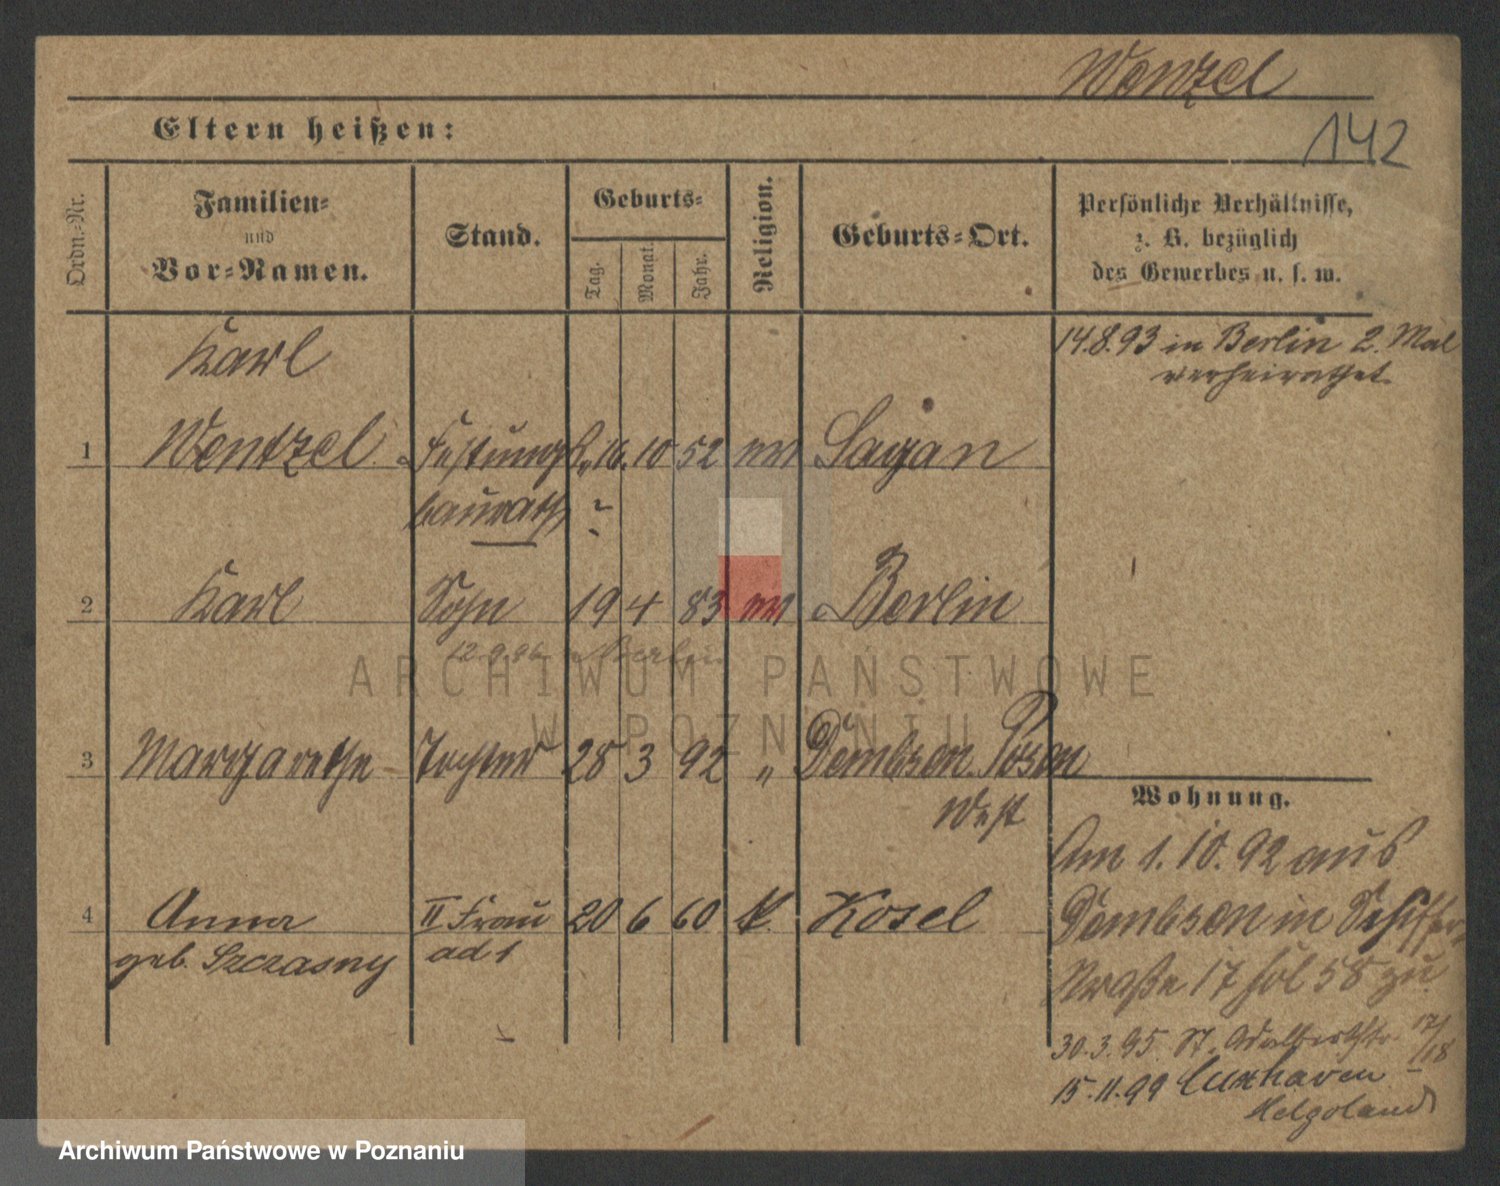 Wenzel
142
Eltern heißen:
Ordn.-Nr.
Familien-
und
Vor-Namen.
Stand.
Geburts-
Tag.
Monat.
Jahr.
Religion.
Geburts-Ort.
Persönliche Verhältnisse,
z. B. bezüglich
des Gewerbes u. s. w.
Karl
14.8.93 in Berlin 2. Mal
verheirathet.
1 Wentzel Festungs 16. 10 52 ev Sagan
baurath ?
2 Karl Sohn 19 4 83 ev Berlin
12.9.86 Berlin
ARCHIWUM PAŃSTWOWE
W POZNANIU
3 Margarethe Tochter 28 3 92 " Dembsen. Posen
West
Wohnung.
Am 1.10.92 aus
4 Anna II Frau 20 6 60 k. Kosel
Dembsen in Schiffer-
geb. Szczasny ad 1
straße 17 fol 58 zu
30.3.95. St. Adalbertstr. 17/18
15.11.99 Cuxhaven
Helgoland
Archiwum Państwowe w Poznaniu